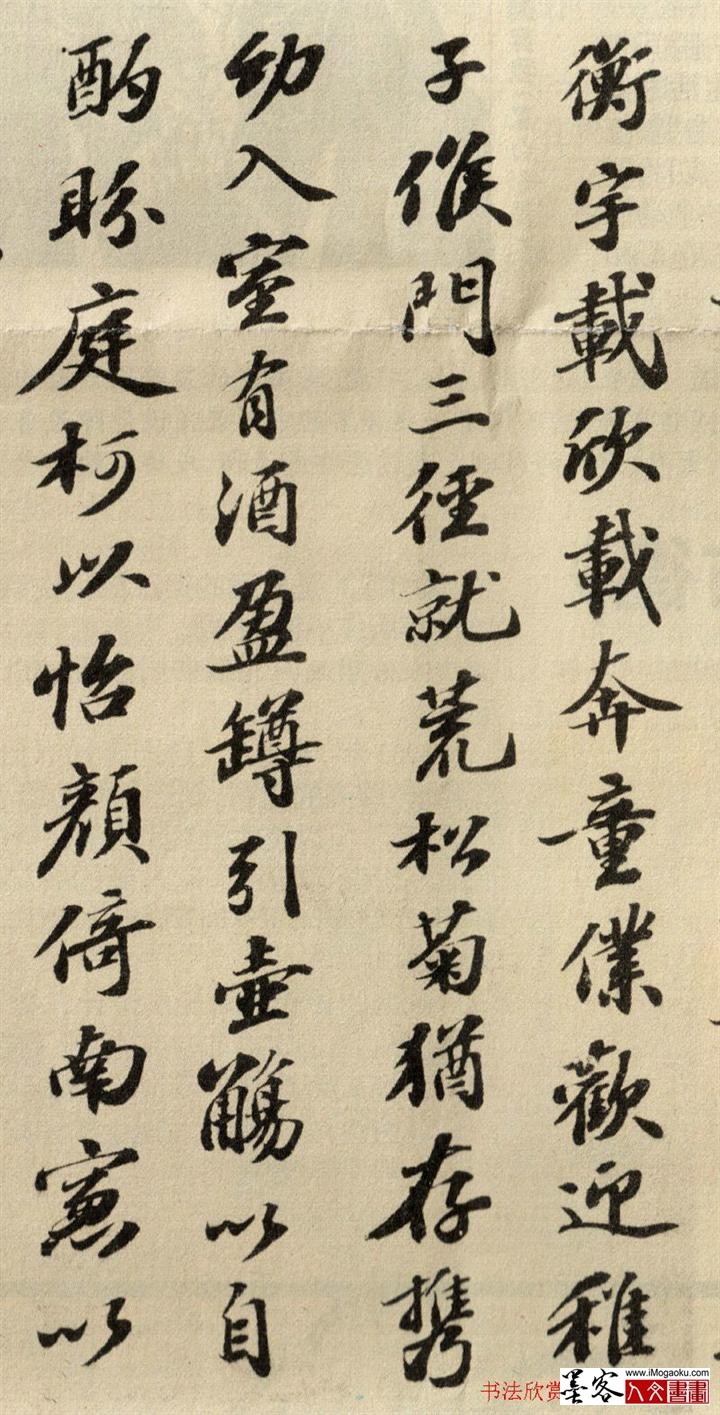 衡宇載欣載奔童僕歡迎稚
子候門三徑就荒松菊猶存攜
幼入室有酒盈罇引壺觴以自
酌眄庭柯以怡顏倚南窗以
书法欣赏
墨客
www.iMogaoku.com
人文書畫